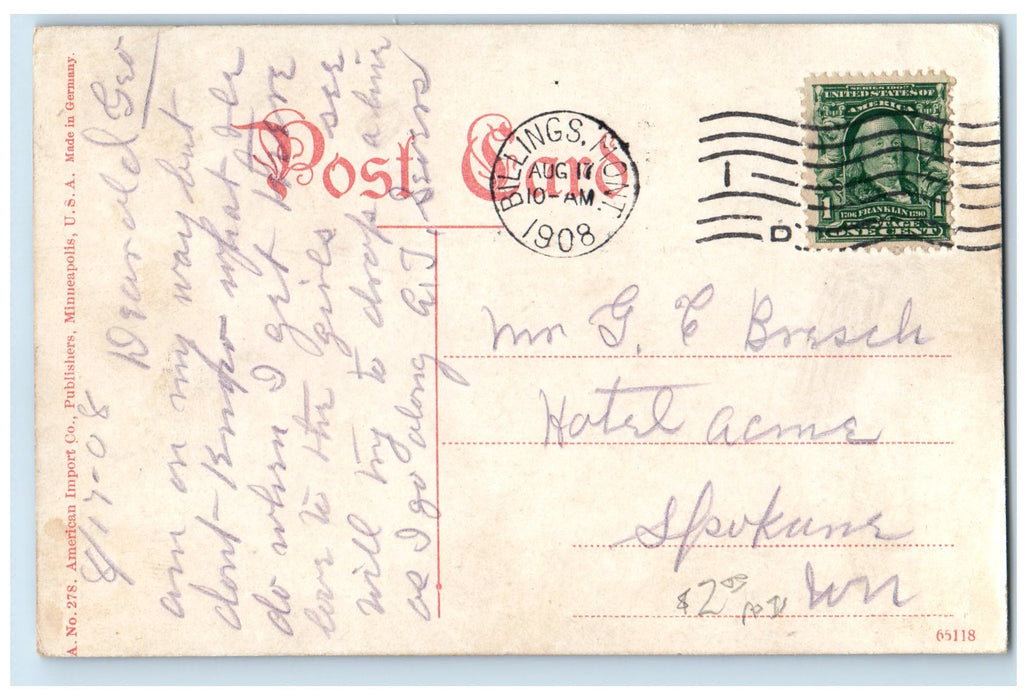 A. No. 278. American Import Co., Publishers, Minneapolis, U. S. A. Made in Germany.
Post Card
BILLINGS, MONT.
AUG 17
10-AM
1908
1
D
SERIES 1902
UNITED STATES OF
AMERICA
1706 FRANKLIN 1790
POSTAGE
1 ONE CENT 1
8/17-08
Dear old Geo
am on my way but
dont know what I le
do when I get there
love to the girls see
will try to drop a line
as I go along
Mr G. E Boesch
Hotel Acme
Spokane
Wn
$2.00
65118